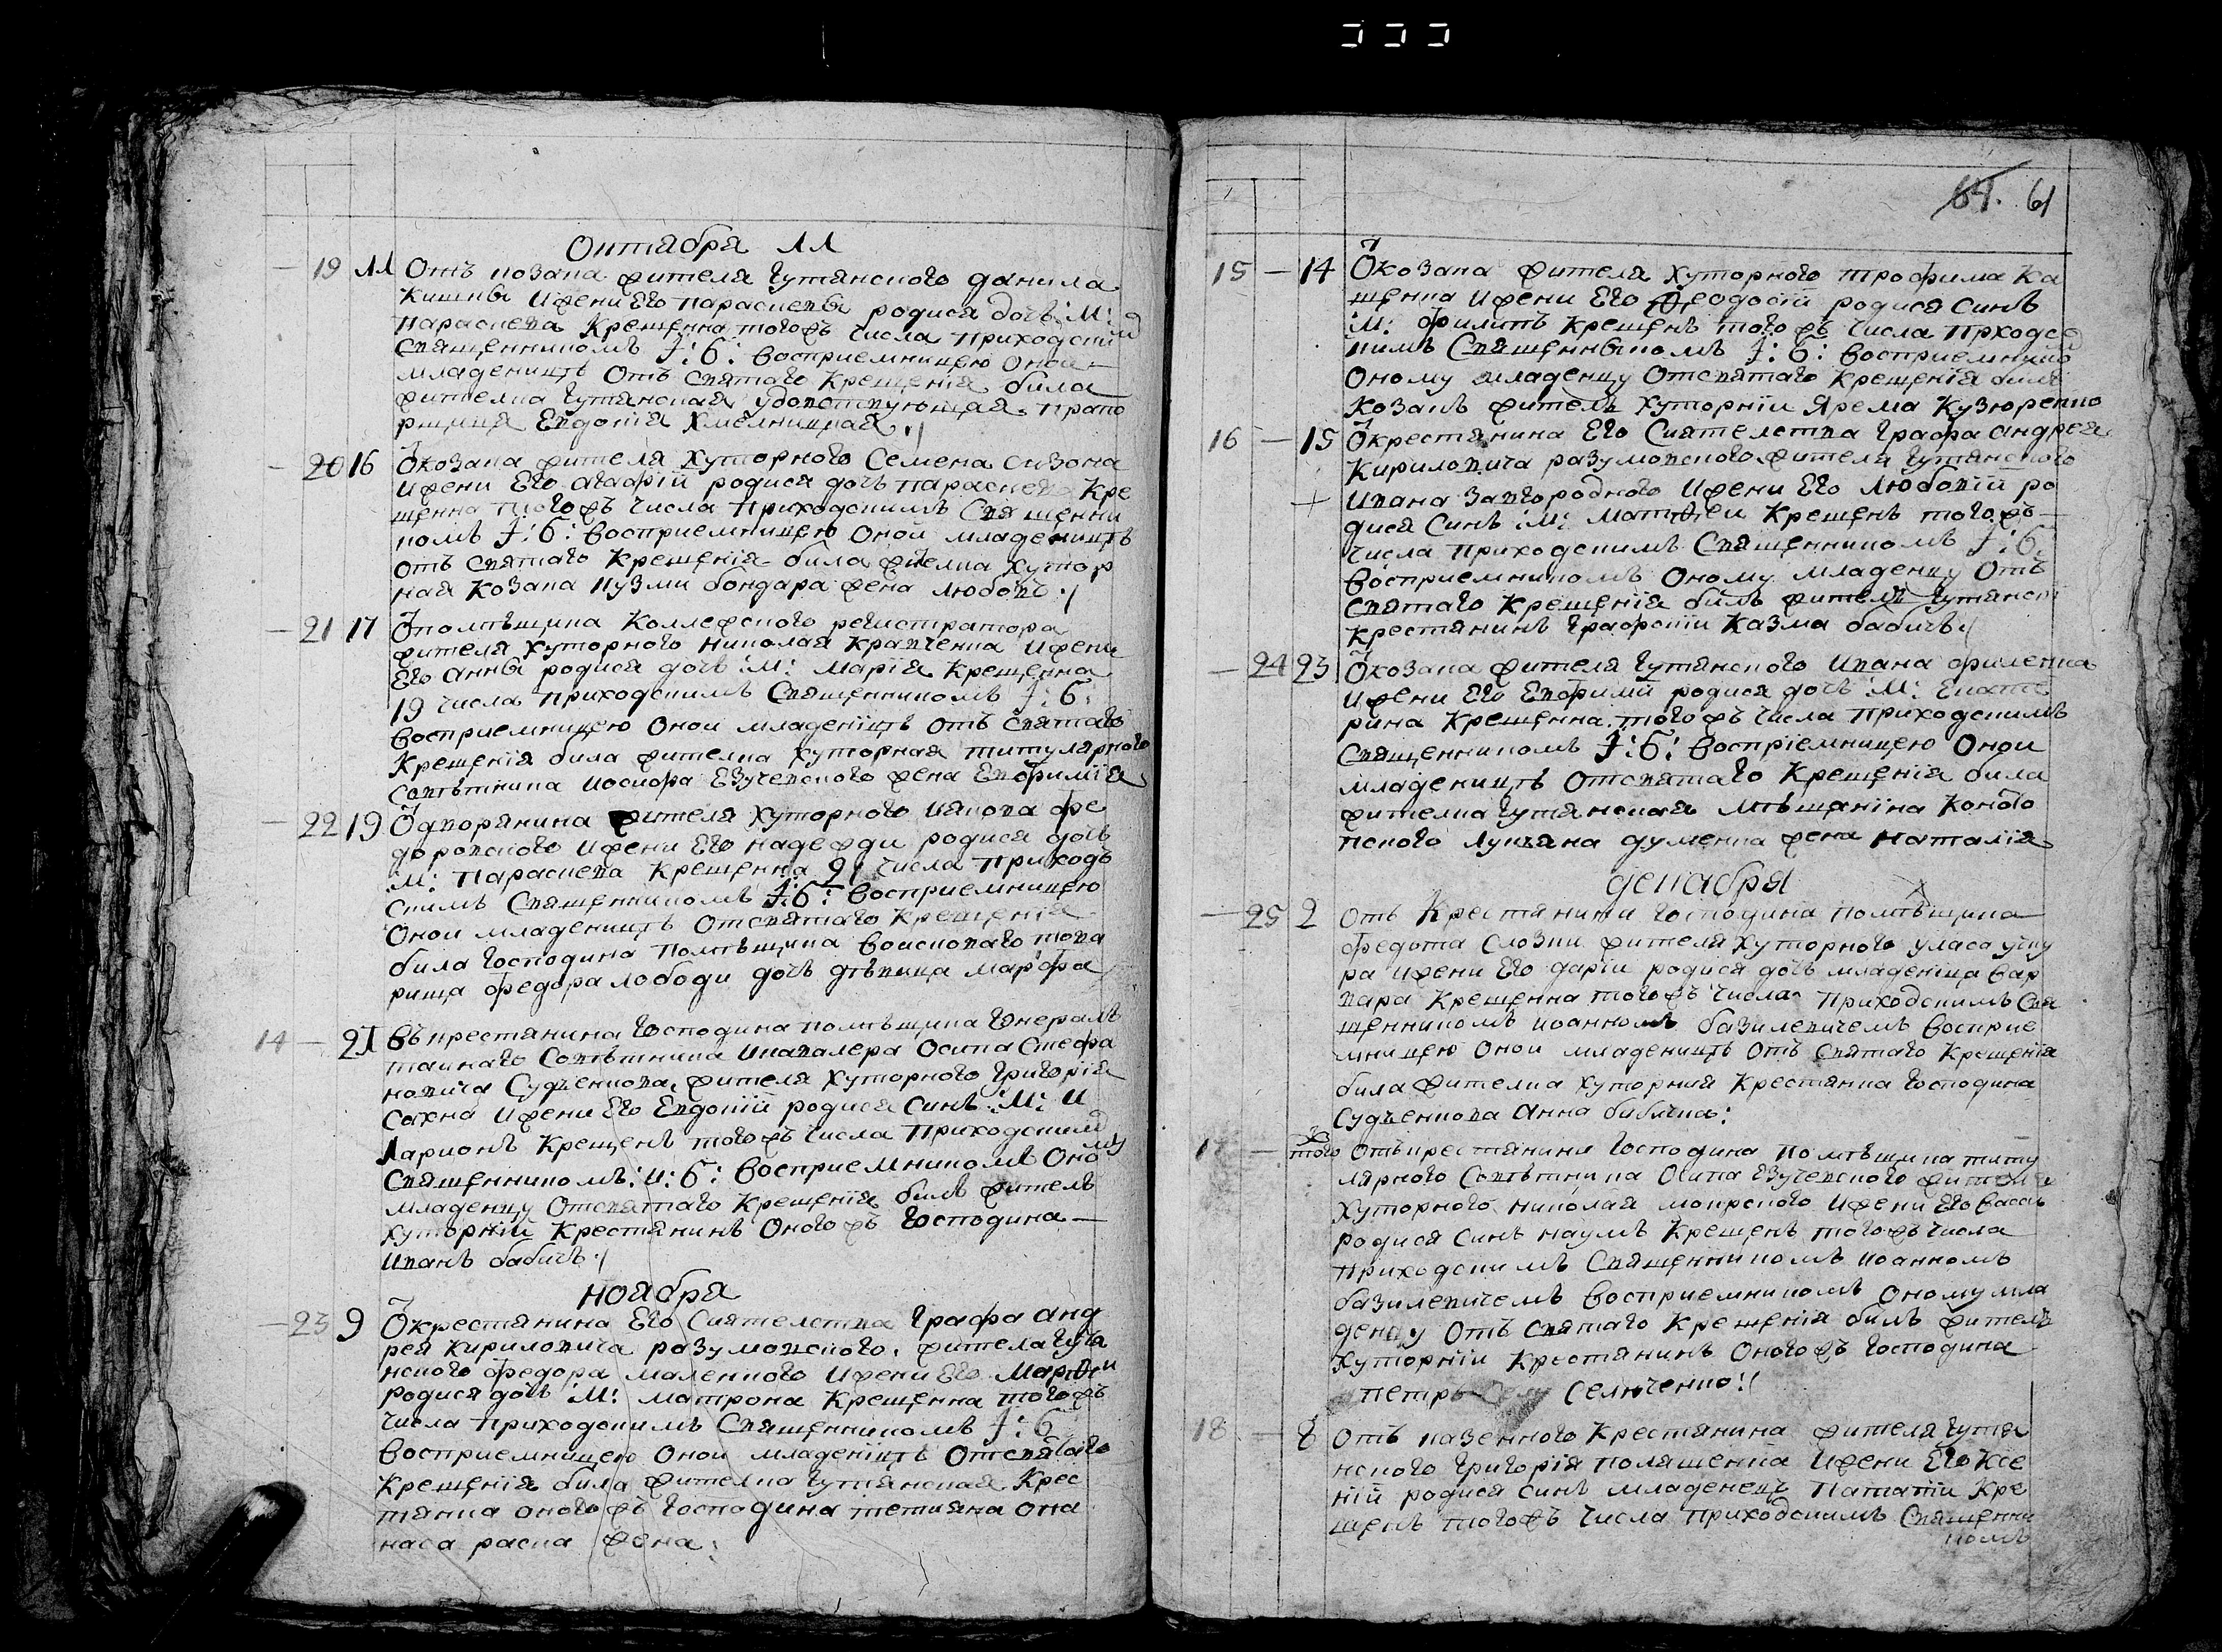 64. 61
Октября 11
19 11 Отъ козака жителя гутянского данила
Кишки Ижени Его параскевы родися дочь :М:
параскева Крещенна тогожъ числа приходским
Священникомъ І: Б: восприемницею Оной
младеницѣ Отъ святаго Крещенія била
жителка гутянская удовствующая прапо
рщица Евдокія Хмелницкая ./
20 16 Ѿ козака жителя Хуторного Семена сизона
Ижени Его агафіи родися дочь параскева Кре
щенна тогожъ числа Приходскимъ Священни
комъ І: Б: восприемницею Оной младеницѣ
отъ святаго Крещенія била жителка Хутор
ная Козака кузми бондара жена любовъ ./
21 17 Ѿ помѣщика Коллежского регистратора
жителя Хуторного николая Кравченка Ижени
Его анны родися дочь :М: Марія Крещенна
19 числа приходскимъ Священникомъ І: Б:
восприемницею Оной младеницѣ отъ святаго
Крещенія била жителка Хуторная титулярного
Совѣтника иосифа Езучевского жена Евфимія
22 19 Ѿ дворянина жителя Хуторного иякова фе
доровского Ижени Его надежди родися дочь
:М: Параскева Крещенна 21 числа приходъ
скимъ Священникомъ І: Б: восприемницею
Оной младеницѣ Отсвятаго Крещенія
била Господина помѣщика воискового това
рища федора лободи дочь дѣвица марфа
14 21 Въ крестянина Господина помѣщика Генералъ
таинаго Совѣтника Икавалера Осипа Стефа
новича Судиенкова, жителя Хуторного Григорія
Сахна Ижени Его Евдокіи родися синъ :М: И
Ларионъ Крещенъ тогожъ числа Приходским
Священникомъ: И: Б: восприемникомъ Оному
младенцу Отсвятаго Крещенія билъ жителъ
Хуторній Крестянинъ Оногожъ Господина
Иванъ бабичъ ./
Ноября
23 9 Ѿ крестянина Его Сиятелства Графа анд
рея Кириловича разумовского, жителя гутя
нского федора маленкого Ижени Его Марфи
родися дочь :М: Матрона Крещенна тогожъ
числа приходскимъ Священникомъ І: Б:
восприемницею Оной младеницѣ Отсвятаго
Крещенія била жителка гутянская Крес
тянка оногожъ Господина тетияна опа
наса раска жена:
15 14 Ѿ козака жителя Хуторного трофима Ка
щенка Ижени Его Ѳеодосіи родися синъ
:М: филипъ Крещенъ тогожъ числа прходс
кимъ Священныкомъ І: Б: восприемнико
Оному младенцу Отсвятаго Крещенія билъ
Козакъ жителъ Хуторніи Ярема Кузюренко
16 15 Ѿ крестянина Его Сиятелства Графа андрея
Кириловича разумовского жителя гутянского
Ивана Завгородного Ижени Его Любовіи ро
дися Синъ :М: Матѳеи Крещенъ тогожъ
числа приходскимъ Священникомъ І: Б:
восприемникомъ Оному младенцу Отъ
святаго Крещенія билъ жителъ гутянскі
Крестянинъ Графскіи Казма бабичъ./
24 23 Ѿ козака жителя гутянского Ивана филенка
Ижени Его Евфиміи родися дочь :М: Екате
рина Крещенна, тогожъ числа Приходскимъ
Священникомъ І: Б: воспріемницею Оной
младеницѣ Отсвятаго Крещенія била
жителка гутянская мѣщаніна Коното
пского лукияна думенка жена наталія
декабря
25 2 отъ Крестянини Господина помѣщика
федота слозки жителя Хуторного уласа учку
ра Ижени Его даріи родися дочь младеніца вар
вара Крещенна тогожъ числа Приходскимъ Свя
щенникомъ иоанномъ базилевичемъ восприе
мницею Оной младеницѣ Отъ святаго Крещенія
била жителка хуторная Крестянка Господина
Судиенкова анна бабичка:
17 того ж Отъкрестянина Господина помѣщика титу
лярного Совѣтника Осипа Езучевского жителя
Хуторного николая мокрского Ижени Его васси
родися синъ наумъ Крещенъ тогожъ числа
приходскимъ Священникомъ иоанномъ
базилевичемъ восприемникомъ Оному мла
денцу Отъ Святаго Крещенія билъ жителъ
Хуторніи Крестянинъ Оногожъ Господина
петръ Селюченко!!
18 8 Отъ казенного Крестянина жителя гутя
нского Григорія поляшенка Ижени Его Ксе
ніи родися синъ младенецъ Патапіи Кре
щенъ тогожъ числа приходскимъ Священни
комъ